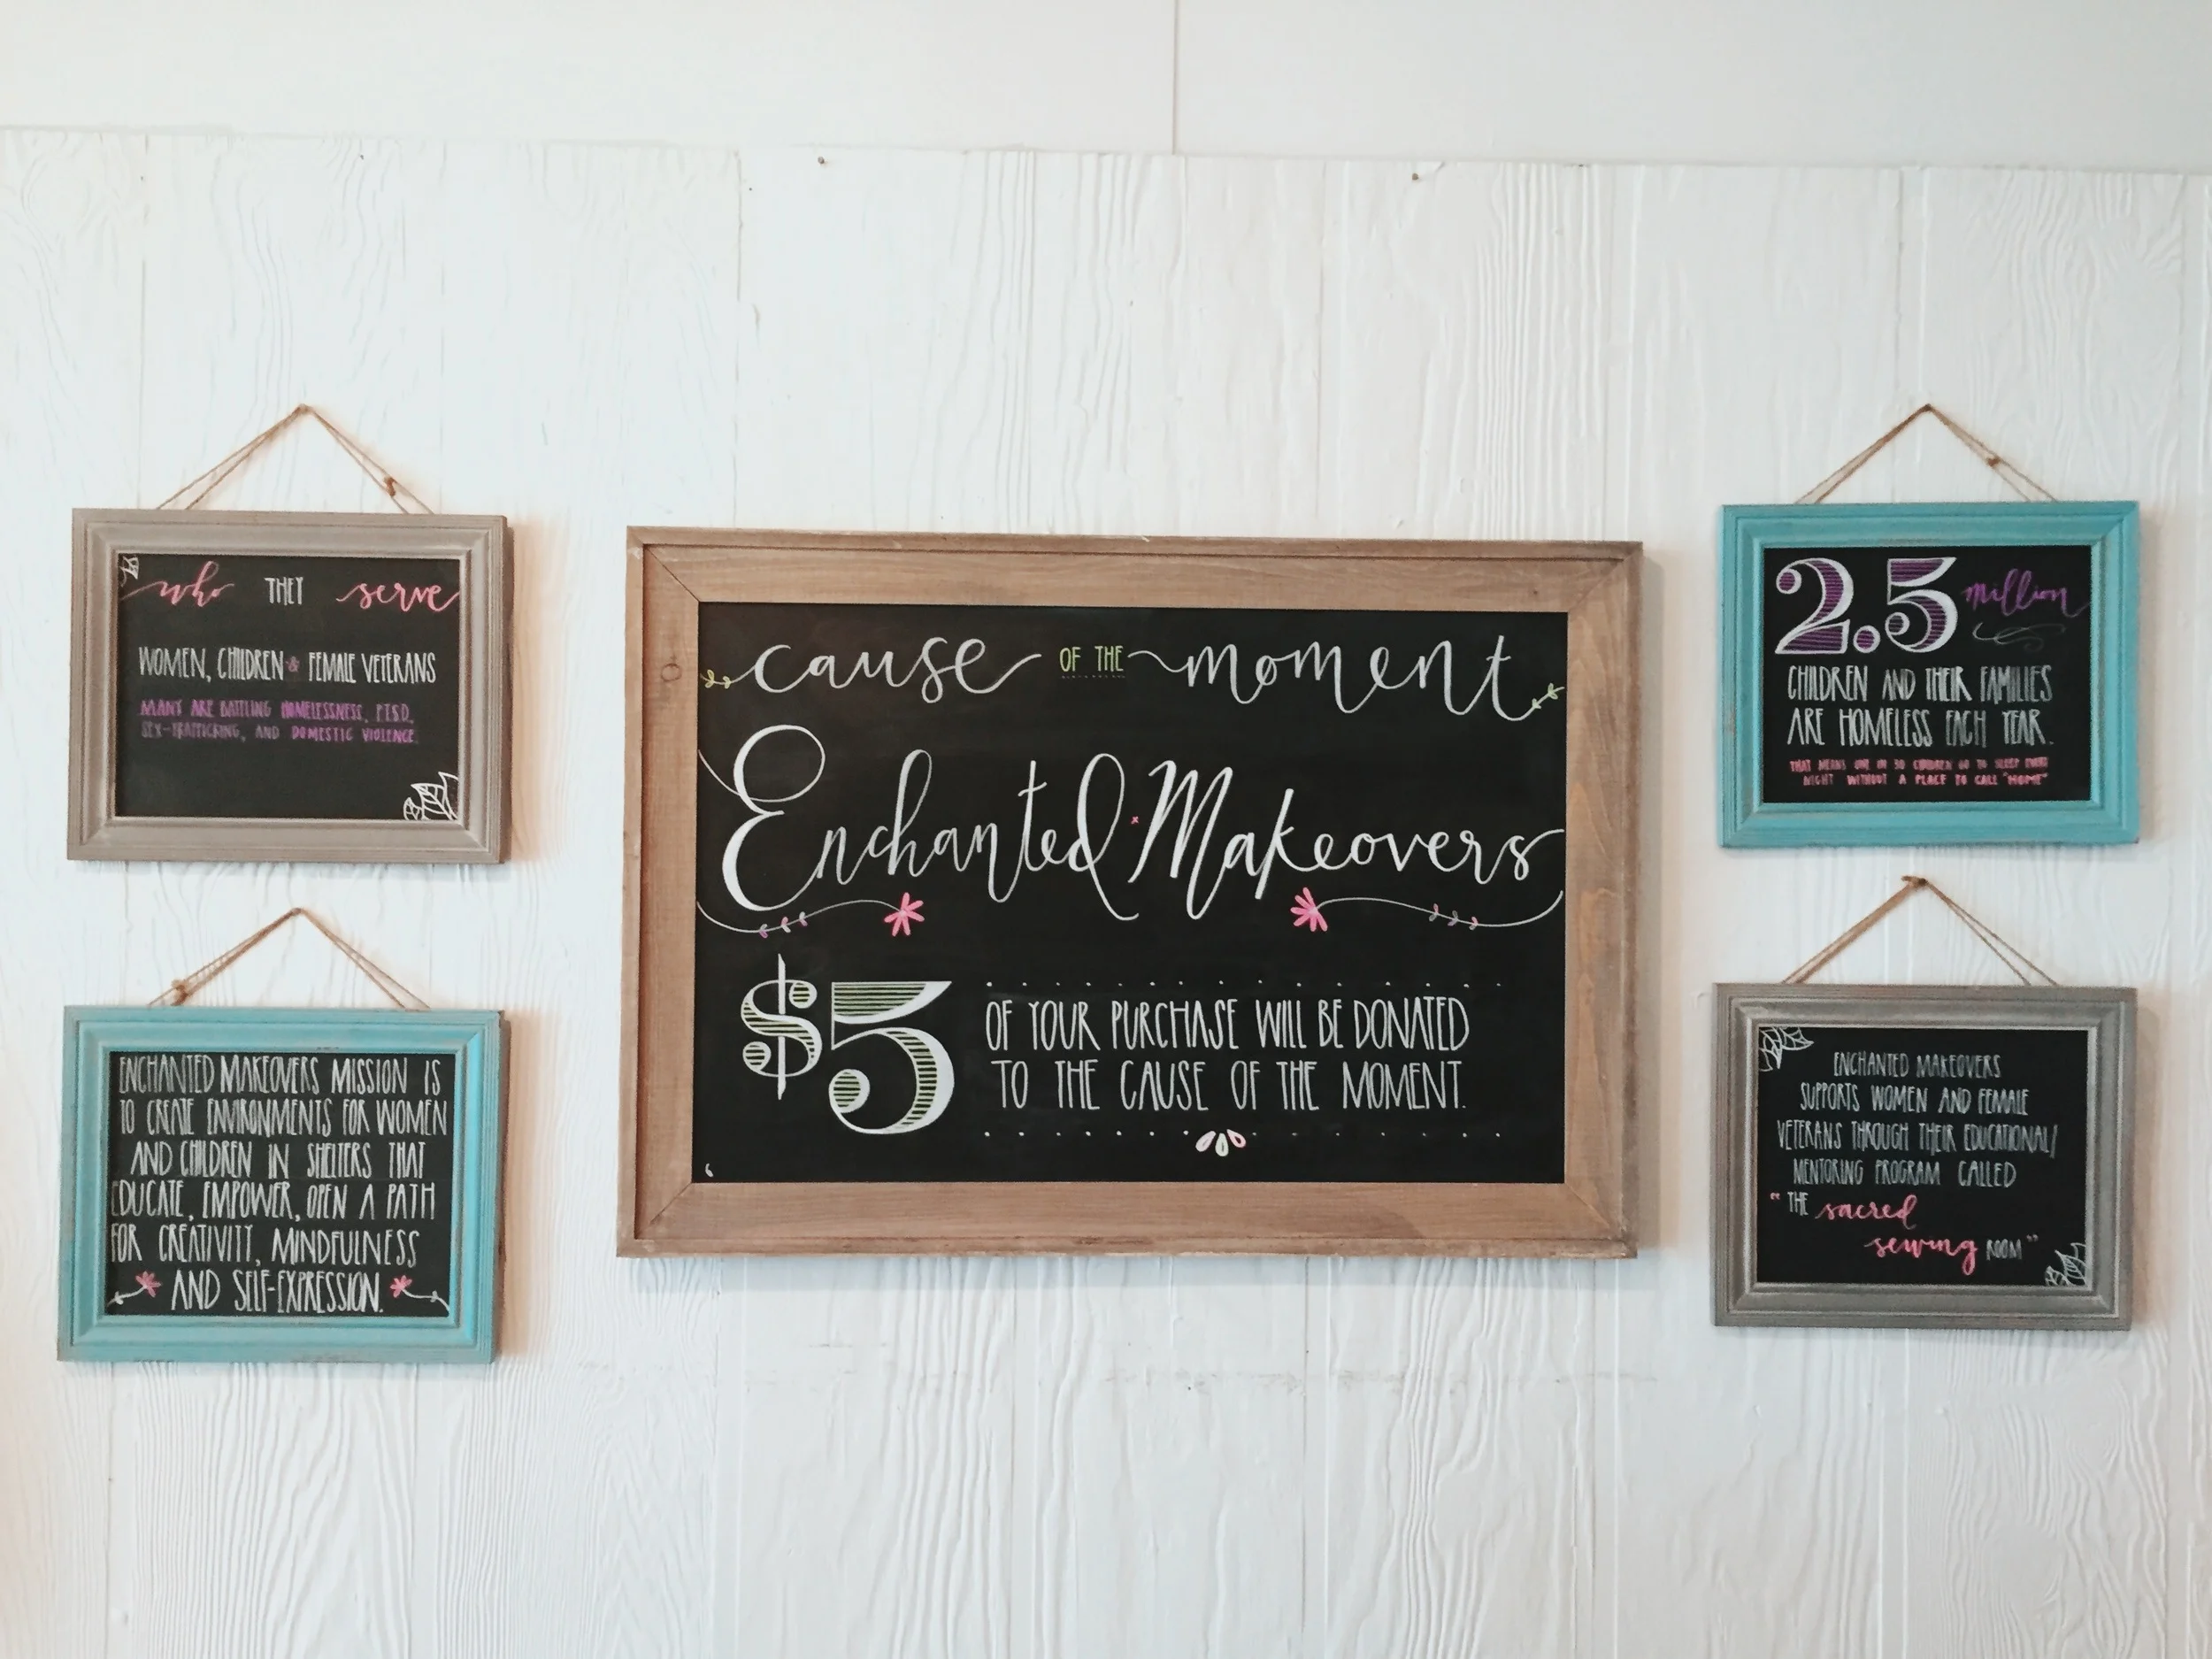 who THEY serve
WOMEN, CHILDREN & FEMALE VETERANS
MANY ARE BATTLING HOMELESSNESS, PTSD,
SEX-TRAFFICKING, AND DOMESTIC VIOLENCE.
ENCHANTED MAKEOVERS MISSION IS
TO CREATE ENVIRONMENTS FOR WOMEN
AND CHILDREN IN SHELTERS THAT
EDUCATE, EMPOWER, OPEN A PATH
FOR CREATIVITY, MINDFULNESS
AND SELF-EXPRESSION.
cause OF THE moment
Enchanted Makeovers
$5 OF YOUR PURCHASE WILL BE DONATED
TO THE CAUSE OF THE MOMENT.
2.5 million
CHILDREN AND THEIR FAMILIES
ARE HOMELESS EACH YEAR.
THAT MEANS ONE IN 30 CHILDREN GO TO SLEEP EVERY
NIGHT WITHOUT A PLACE TO CALL "HOME"
ENCHANTED MAKEOVERS
SUPPORTS WOMEN AND FEMALE
VETERANS THROUGH THEIR EDUCATIONAL/
MENTORING PROGRAM CALLED
"THE sacred
sewing ROOM"